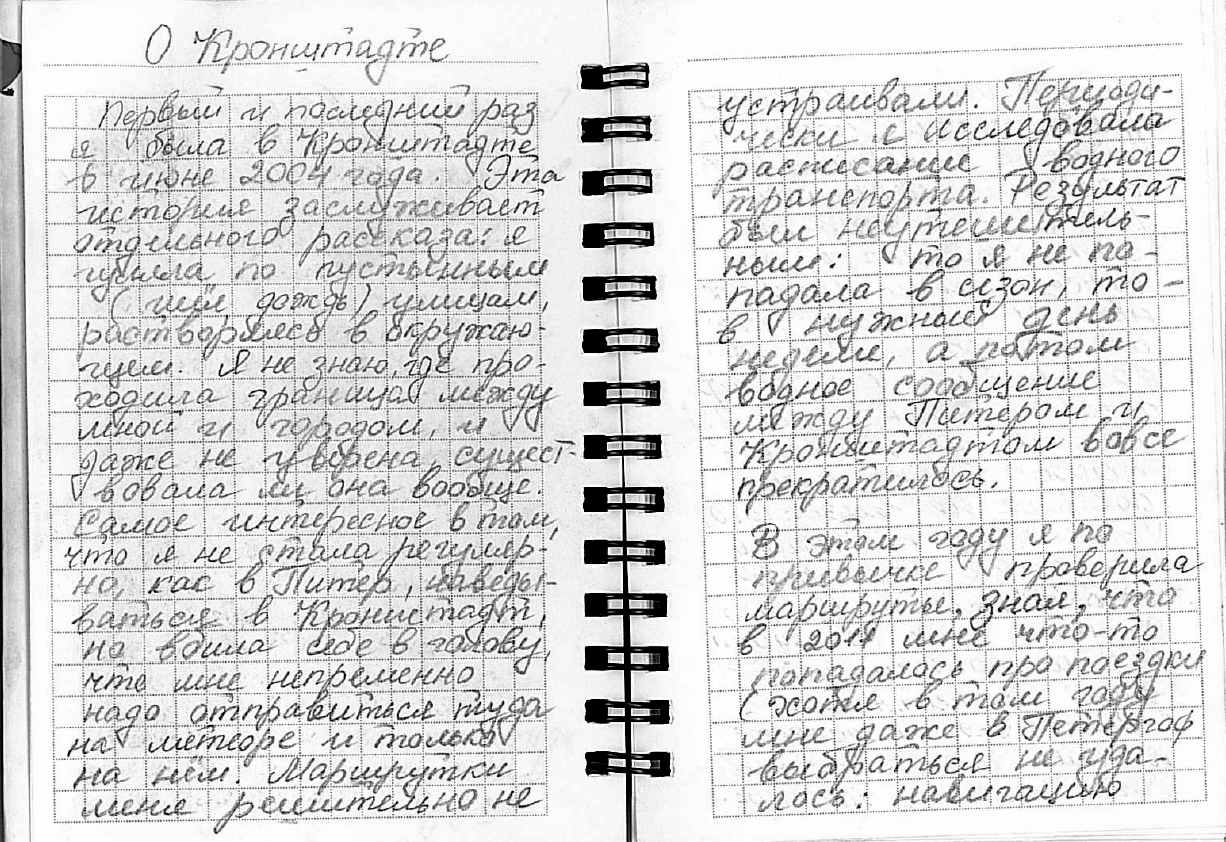 О Кронштадте
Первый и последний раз
я была в Кронштадте
в июне 2004 года. Эта
история заслуживает
отдельного рассказа: я
гуляла по пустынным
(шёл дождь) улицам,
растворяясь в окружаю-
щем. Я не знаю, где про-
ходила граница между
мной и городом, и
даже не уверена, сущест-
вовала ли она вообще.
Самое интересное в том,
что я не стала регуляр-
но, как в Питер, наведы-
ваться в Кронштадт,
но вбила себе в голову,
что мне непременно
надо отправиться туда
на метеоре и только
на нём. Маршрутки
меня решительно не
устраивали. Периоди-
чески я исследовала
расписание водного
транспорта. Результат
был неутешитель-
ным: то я не по-
падала в сезон, то -
в нужный день
недели, а потом
водное сообщение
между Питером и
Кронштадтом вовсе
прекратилось.
В этом году я по
привычке проверила
маршруты, зная, что
в 2011 мне что-то
попадалось про поездки
(хотя в том году
мне даже в Петергоф
выбраться не уда-
лось: навигацию